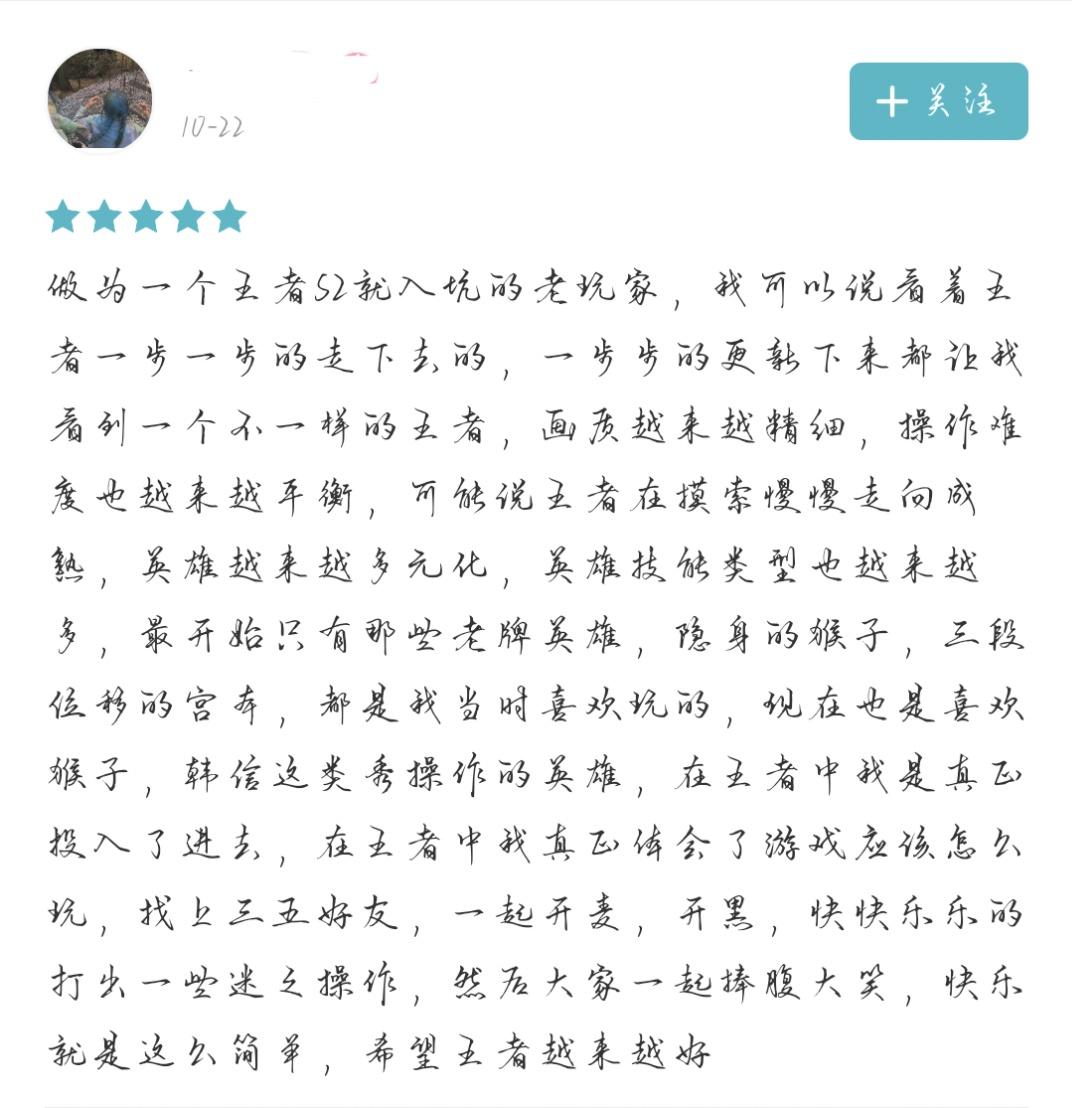 10-22
+ 关注
做为一个王者S2就入坑的老玩家，我可以说看着王
者一步一步的走下去的，一步步的更新下来都让我
看到一个不一样的王者，画质越来越精细，操作难
度也越来越平衡，可能说王者在摸索慢慢走向成
熟，英雄越来越多元化，英雄技能类型也越来越
多，最开始只有那些老牌英雄，隐身的猴子，三段
位移的宫本，都是我当时喜欢玩的，现在也是喜欢
猴子，韩信这类秀操作的英雄，在王者中我是真正
投入了进去，在王者中我真正体会了游戏应该怎么
玩，找上三五好友，一起开麦，开黑，快快乐乐的
打出一些迷之操作，然后大家一起捧腹大笑，快乐
就是这么简单，希望王者越来越好